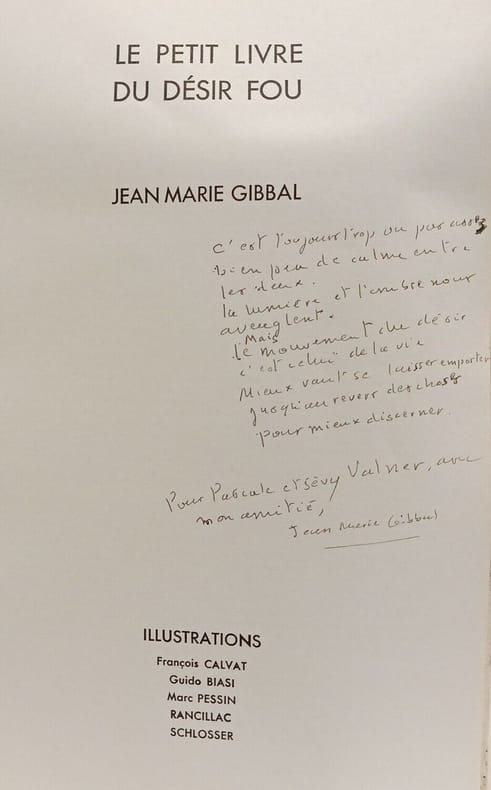 LE PETIT LIVRE
DU DÉSIR FOU
JEAN MARIE GIBBAL
c'est toujours trop ou pas assez
bien peu de calme entre
les deux.
la lumière et l'ombre nous
aveuglent.
Mais
le mouvement du désir
c'est celui de la vie
Mieux vaut se laisser emporter
jusqu'au revers des choses
pour mieux discerner.
Pour Pascale et Sévy Valner, avec
mon amitié,
Jean Marie Gibbal
ILLUSTRATIONS
François CALVAT
Guido BIASI
Marc PESSIN
RANCILLAC
SCHLOSSER